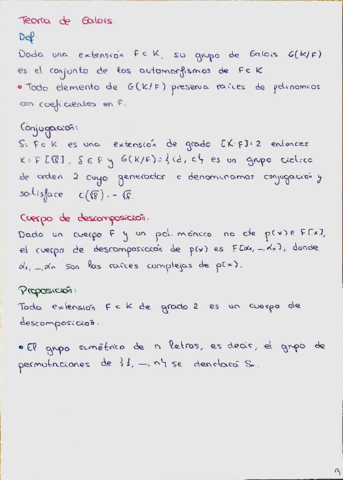 Teoría de Galois.
Def
Dada una extensión F ⊂ K, su grupo de Galois G(K/F)
es el conjunto de los automorfismos de F ⊂ K
• Todo elemento de G(K/F) preserva raíces de polinomios
con coeficientes en F.
Conjugación:
Si F ⊂ K es una extensión de grado [K:F]=2 entonces
K = F[√δ], δ ∈ F y G(K/F) = {id, c} es un grupo cíclico
de orden 2 cuyo generador c denominamos conjugación y
satisface c(√δ) = -√δ
Cuerpo de descomposición.
Dado un cuerpo F y un pol. mónico no cte p(x) ∈ F[x],
el cuerpo de descomposición de p(x) es F[α₁, …, αₙ], donde
α₁, …, αₙ son las raíces complejas de p(x).
Proposición:
Toda extensión F ⊂ K de grado 2 es un cuerpo de
descomposición.
• El grupo simétrico de n letras, es decir, el grupo de
permutaciones de {1, …, n} se denotará Sₙ